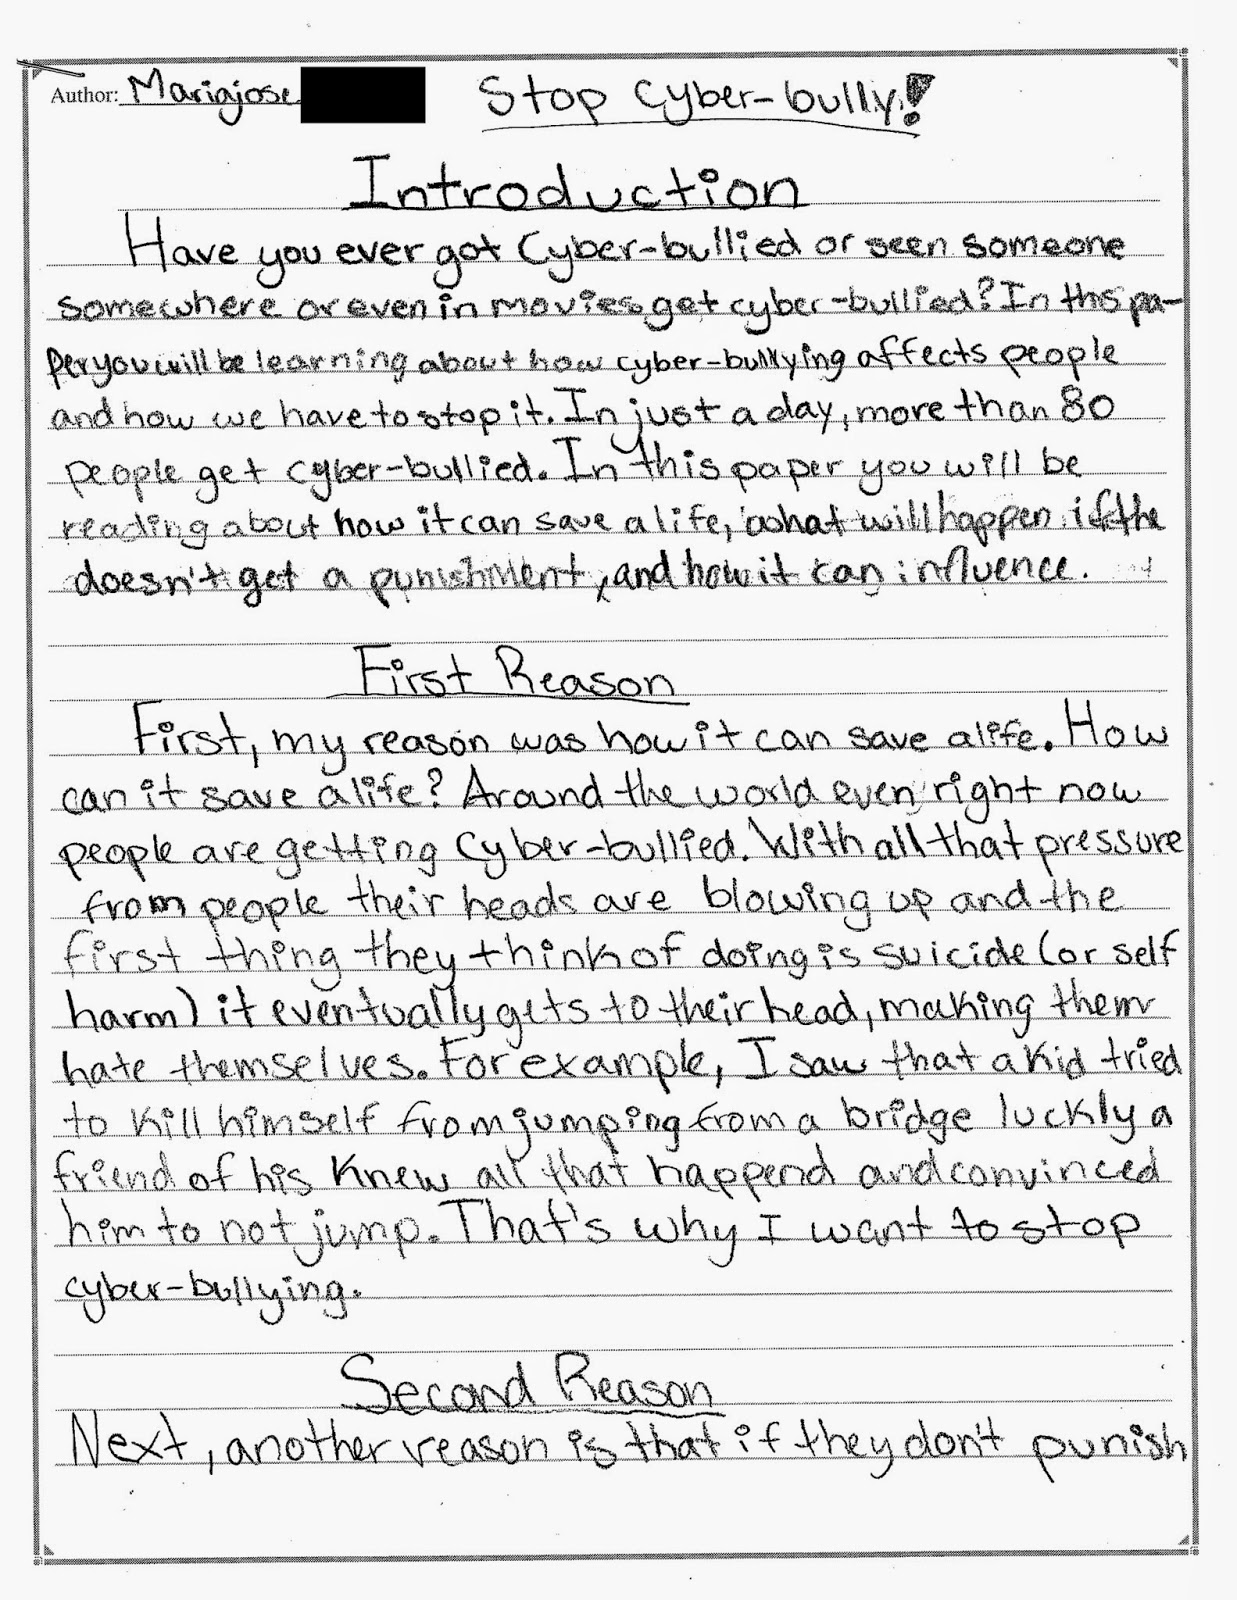 Author: Mariajose
Stop Cyber-bully!
Introduction
Have you ever got Cyber-bullied or seen someone
somewhere or even in movies get cyber-bullied? In this pa-
per you will be learning about how cyber-bullying affects people
and how we have to stop it. In just a day, more than 80
people get cyber-bullied. In this paper you will be
reading about how it can save a life, what will happen if the
doesn't get a punishment, and how it can influence.
First Reason
First, my reason was how it can save a life. How
can it save a life? Around the world even right now
people are getting Cyber-bullied. With all that pressure
from people their heads are blowing up and the
first thing they think of doing is suicide (or self
harm) it eventually gets to their head, making them
hate themselves. For example, I saw that a kid tried
to kill himself from jumping from a bridge luckly a
friend of his knew all that happend and convinced
him to not jump. That's why I want to stop
cyber-bullying.
Second Reason
Next, another reason is that if they don't punish